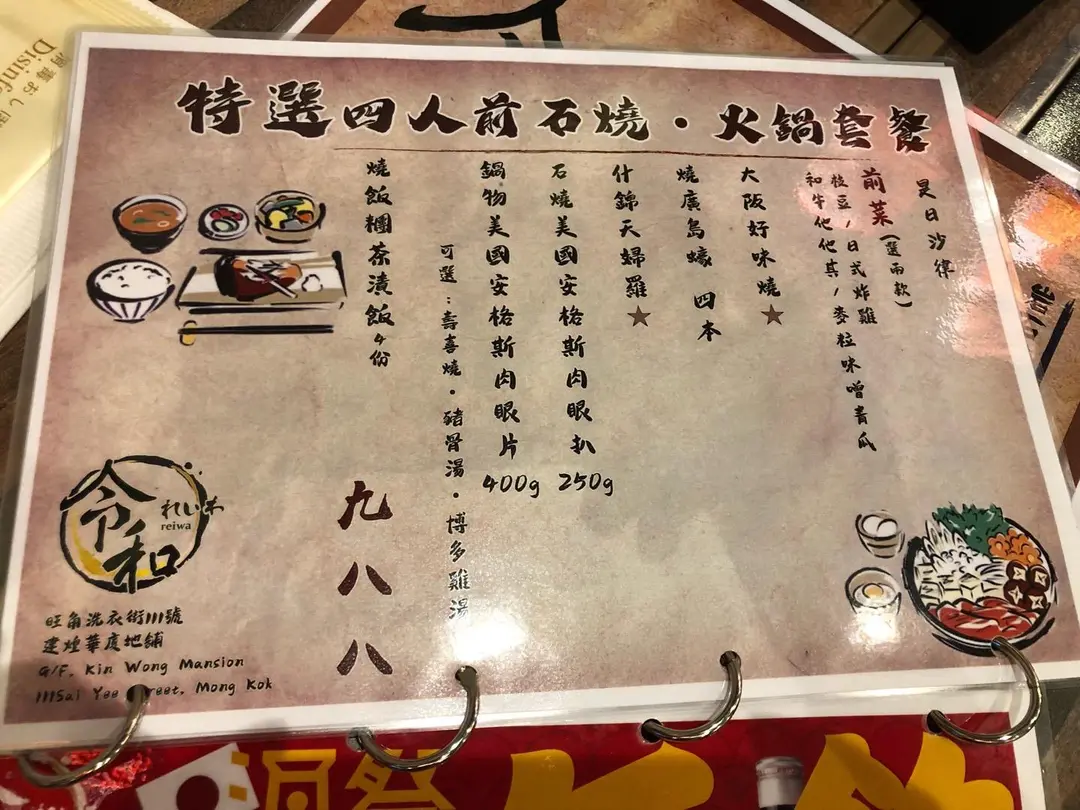 特選四人前石燒・火鍋套餐
昊日沙律
前菜(選兩款)
枝豆/日式炸雞
和牛他他其/麥粒味噌青瓜
大阪好味燒★
燒廣島蠔 四本
什錦天婦羅★
石燒美國安格斯肉眼扒 250g
鍋物美國安格斯肉眼片 400g
可選：壽喜燒・豬骨湯・博多雞湯
燒飯糰茶漬飯4份
九八八
令和
れいわ
reiwa
旺角洗衣街111號
建煌華廈地舖
G/F, Kin Wong Mansion
111Sai Yee Street, Mong Kok